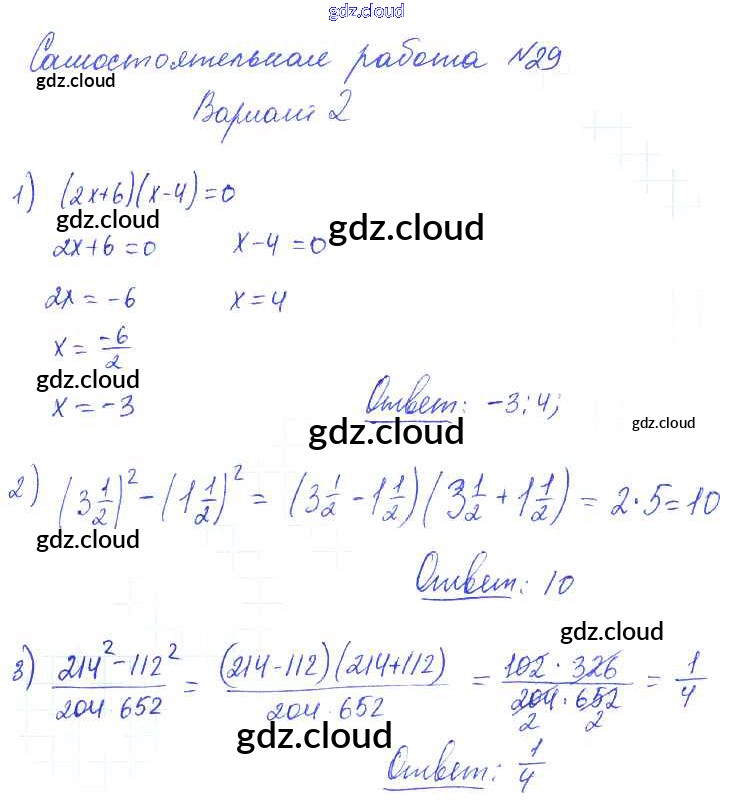 gdz.cloud
Самостоятельная работа №29
gdz.cloud
Вариант 2
1) (2x+6)(x-4)=0
gdz.cloud gdz.cloud
2x+6=0 x-4=0
2x = -6 x=4
x = -6/2
gdz.cloud
x = -3 Ответ: -3; 4;
gdz.cloud gdz.cloud
2) (3 1/2)² - (1 1/2)² = (3 1/2 - 1 1/2)(3 1/2 + 1 1/2) = 2·5=10
gdz.cloud
Ответ: 10
3) (214²-112²)/(204·652) = ((214-112)(214+112))/(204·652) = (102·326)/(204·652) = 1/4
2 2
gdz.cloud
Ответ: 1/4